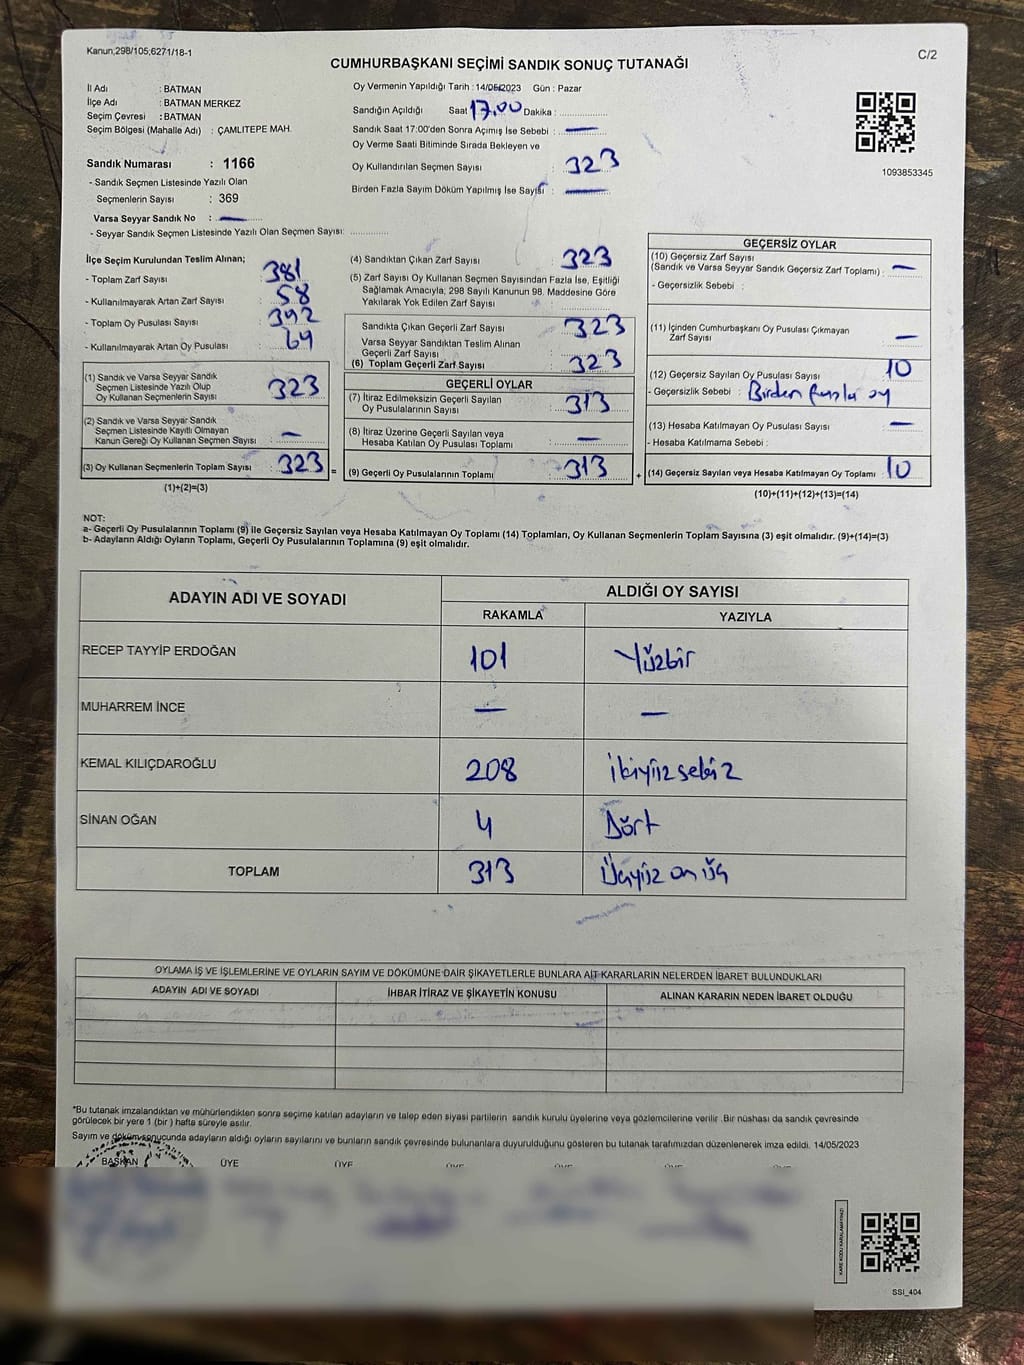 Kanun,298/105,6271/18-1
C/2
CUMHURBAŞKANI SEÇİMİ SANDIK SONUÇ TUTANAĞI
İl Adı : BATMAN
İlçe Adı : BATMAN MERKEZ
Seçim Çevresi : BATMAN
Seçim Bölgesi (Mahalle Adı) : ÇAMLITEPE MAH.
Sandık Numarası : 1166
- Sandık Seçmen Listesinde Yazılı Olan
Seçmenlerin Sayısı : 369
Varsa Seyyar Sandık No : —
- Seyyar Sandık Seçmen Listesinde Yazılı Olan Seçmen Sayısı: ............
Oy Vermenin Yapıldığı Tarih : 14/05/2023 Gün : Pazar
Sandığın Açıldığı Saat 17.00 Dakika : ............
Sandık Saat 17:00'den Sonra Açımış İse Sebebi : —
Oy Verme Saati Bitiminde Sırada Bekleyen ve
Oy Kullandırılan Seçmen Sayısı : 323
Birden Fazla Sayım Döküm Yapılmış İse Sayısı : —
1093853345
İlçe Seçim Kurulundan Teslim Alınan;
- Toplam Zarf Sayısı : 381
- Kullanılmayarak Artan Zarf Sayısı : 58
- Toplam Oy Pusulası Sayısı : 392
- Kullanılmayarak Artan Oy Pusulası : 69
(1) Sandık ve Varsa Seyyar Sandık
Seçmen Listesinde Yazılı Olup
Oy Kullanan Seçmenlerin Sayısı : 323
(2) Sandık ve Varsa Seyyar Sandık
Seçmen Listesinde Kayıtlı Olmayan
Kanun Gereği Oy Kullanan Seçmen Sayısı : —
(3) Oy Kullanan Seçmenlerin Toplam Sayısı : 323 =
(1)+(2)=(3)
(4) Sandıktan Çıkan Zarf Sayısı : 323
(5) Zarf Sayısı Oy Kullanan Seçmen Sayısından Fazla İse, Eşitliği
Sağlamak Amacıyla; 298 Sayılı Kanunun 98. Maddesine Göre
Yakılarak Yok Edilen Zarf Sayısı : ............
Sandıkta Çıkan Geçerli Zarf Sayısı : 323
Varsa Seyyar Sandıktan Teslim Alınan
Geçerli Zarf Sayısı : ............
(6) Toplam Geçerli Zarf Sayısı : 323
GEÇERLİ OYLAR
(7) İtiraz Edilmeksizin Geçerli Sayılan
Oy Pusulalarının Sayısı : 313
(8) İtiraz Üzerine Geçerli Sayılan veya
Hesaba Katılan Oy Pusulası Toplamı : —
(9) Geçerli Oy Pusulalarının Toplamı : 313 +
GEÇERSİZ OYLAR
(10) Geçersiz Zarf Sayısı
(Sandık ve Varsa Seyyar Sandık Geçersiz Zarf Toplamı) : —
- Geçersizlik Sebebi :
(11) İçinden Cumhurbaşkanı Oy Pusulası Çıkmayan
Zarf Sayısı : —
(12) Geçersiz Sayılan Oy Pusulası Sayısı : 10
- Geçersizlik Sebebi : Birden fazla oy
(13) Hesaba Katılmayan Oy Pusulası Sayısı : —
- Hesaba Katılmama Sebebi :
(14) Geçersiz Sayılan veya Hesaba Katılmayan Oy Toplamı : 10
(10)+(11)+(12)+(13)=(14)
NOT:
a- Geçerli Oy Pusulalarının Toplamı (9) ile Geçersiz Sayılan veya Hesaba Katılmayan Oy Toplamı (14) Toplamları, Oy Kullanan Seçmenlerin Toplam Sayısına (3) eşit olmalıdır. (9)+(14)=(3)
b- Adayların Aldığı Oyların Toplamı, Geçerli Oy Pusulalarının Toplamına (9) eşit olmalıdır.
ADAYIN ADI VE SOYADI
ALDIĞI OY SAYISI
RAKAMLA YAZIYLA
RECEP TAYYİP ERDOĞAN 101 Yüzbir
MUHARREM İNCE — —
KEMAL KILIÇDAROĞLU 208 ikiyüzsekiz
SİNAN OĞAN 4 Dört
TOPLAM 313 Üçyüz on üç
OYLAMA İŞ VE İŞLEMLERİNE VE OYLARIN SAYIM VE DÖKÜMÜNE DAİR ŞİKAYETLERLE BUNLARA AİT KARARLARIN NELERDEN İBARET BULUNDUKLARI
ADAYIN ADI VE SOYADI İHBAR İTİRAZ VE ŞİKAYETİN KONUSU ALINAN KARARIN NEDEN İBARET OLDUĞU
*Bu tutanak imzalandıktan ve mühürlendikten sonra seçime katılan adayların ve talep eden siyasi partilerin sandık kurulu üyelerine veya gözlemcilerine verilir .Bir nüshası da sandık çevresinde
görülecek bir yere 1 (bir ) hafta süreyle asılır.
Sayım ve döküm sonucunda adayların aldığı oyların sayılarını ve bunların sandık çevresinde bulunanlara duyurulduğunu gösteren bu tutanak tarafımızdan düzenlenerek imza edildi. 14/05/2023
BAŞKAN ÜYE ÜYE ÜYE ÜYE ÜYE ÜYE
SSI_404